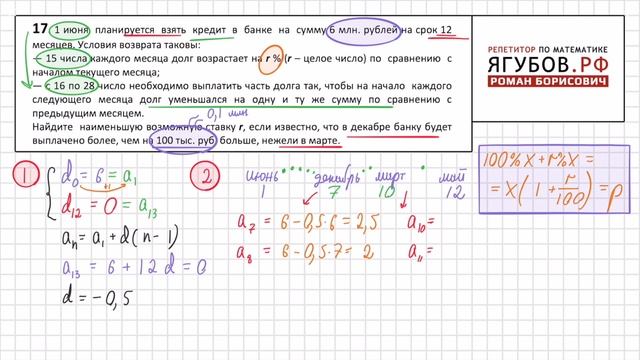 17 1 июня планируется взять кредит в банке на сумму 6 млн. рублей на срок 12
месяцев. Условия возврата таковы:
— 15 числа каждого месяца долг возрастает на r % (r – целое число) по сравнению с
началом текущего месяца;
— с 16 по 28 число необходимо выплатить часть долга так, чтобы на начало каждого
следующего месяца долг уменьшался на одну и ту же сумму по сравнению с
предыдущим месяцем.
0,1 млн
Найдите наименьшую возможную ставку r, если известно, что в декабре банку будет
выплачено более, чем на 100 тыс. руб больше, нежели в марте.
РЕПЕТИТОР ПО МАТЕМАТИКЕ
ЯГУБОВ.РФ
РОМАН БОРИСОВИЧ
100%x + r%x =
= x(1 + r/100) = p
1
d₀ = 6 = a₁
+1
d₁₂ = 0 = a₁₃
aₙ = a₁ + d(n - 1)
a₁₃ = 6 + 12d = 0
d = -0,5
2
июнь декабрь март май
1 7 10 12
a₇ = 6 - 0,5·6 = 2,5 a₁₀ =
a₈ = 6 - 0,5·7 = 2 a₁₁ =